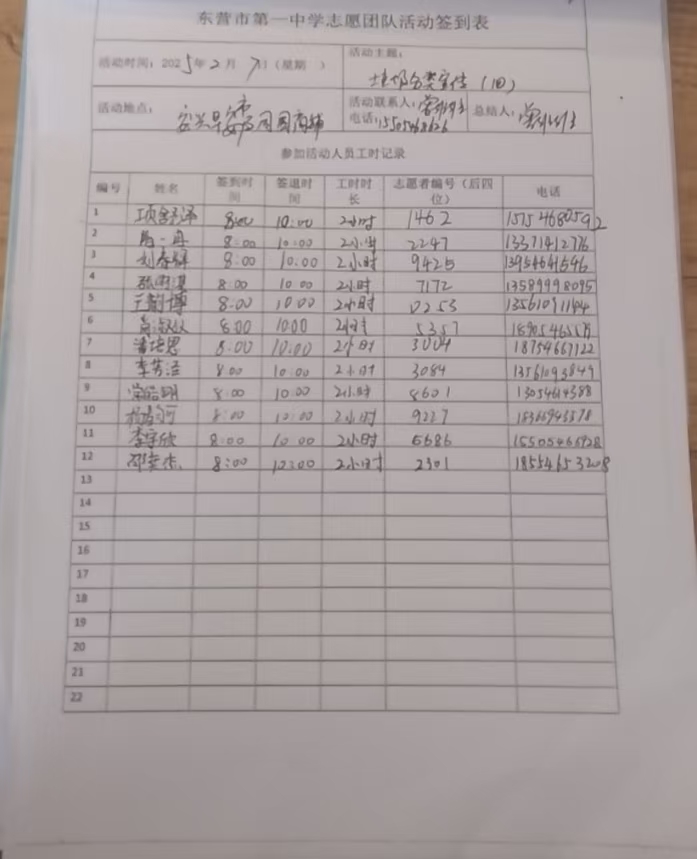 东营市第一中学志愿团队活动签到表
活动时间：2025年2月7日（星期　） 活动主题：
垃圾分类宣传（旧）
活动地点： 活动联系人： 总结人：
电话：15505468626
参加活动人员工时记录
编号 姓名 签到时间 签退时间 工时时长 志愿者编号（后四位） 电话
1 8:00 10:00 2小时 1462 15754680592
2 8:00 10:00 2小时 2247 13371412776
3 刘春辉 8:00 10:00 2小时 9425 13954641546
4 8:00 10:00 2小时 7172 13589998095
5 王韵博 8:00 10:00 2小时 0253
6 8:00 10:00 2小时 5357
7 潘培恩 8:00 10:00 2小时 3004 18754667122
8 李芳洁 8:00 10:00 2小时 3084 13561093849
9 8:00 10:00 2小时 8601 13054614388
10 8:00 10:00 2小时 9227 18366943578
11 李宇欣 8:00 10:00 2小时 6686 15505466928
12 8:00 10:00 2小时 2301 18554653208
13
14
15
16
17
18
19
20
21
22